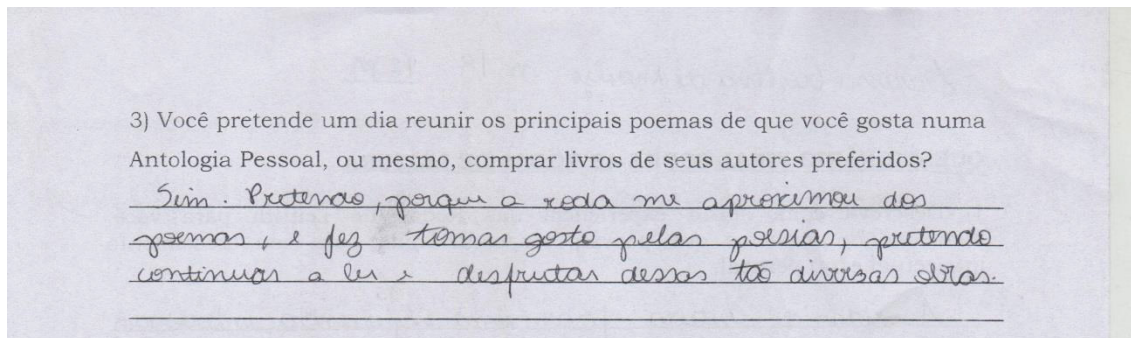 3) Você pretende um dia reunir os principais poemas de que você gosta numa
Antologia Pessoal, ou mesmo, comprar livros de seus autores preferidos?
Sim. Pretendo, porque a roda me aproximou dos
poemas, e fez tomar gosto pelas poesias, pretendo
continuar a ler e desfrutar dessas tão diversas obras.